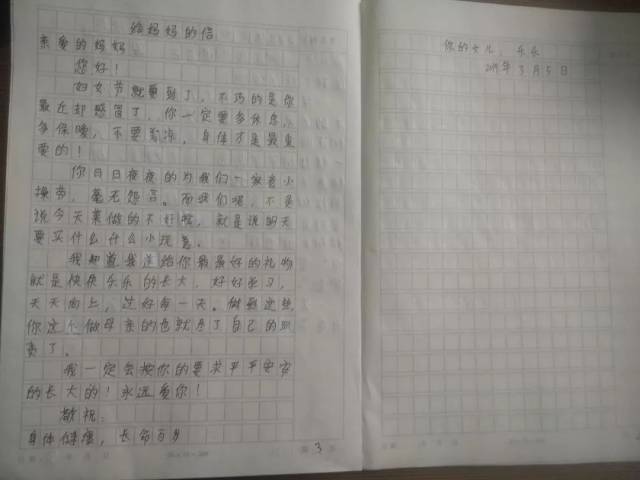 给妈妈的信
亲爱的妈妈
您好！
妇女节就要到了，不巧的是你
最近却感冒了，你一定要多休息，
多保暖，不要着凉，身体才是最重
要的！
你日日夜夜的为我们一家老小
操劳，毫无怨言。而我们呢，不是
说今天菜做的不好吃，就是说明天
要买什么什么小玩意。
我知道我送给你最最好的礼物
就是快快乐乐的长大，好好学习，
天天向上，过好每一天。做到这些，
你这个做母亲的也就尽了自己的职
责了。
我一定会按你的要求平平安安
的长大的！永远爱你！
敬祝：
身体健康，长命百岁
3
你的女儿：乐乐
年3月5日